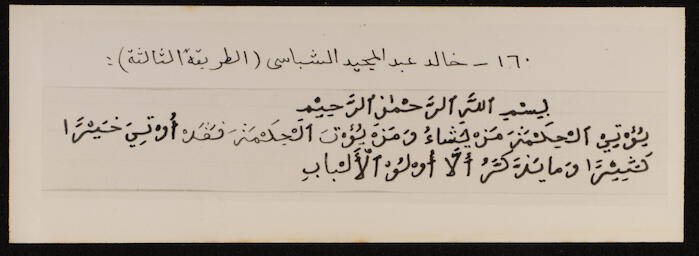 ١٦٠ - خالد عبد المجيد الشباسى (الطريقة الثالثة):
بِسْمِ اللَّهِ الرَّحْمٰنِ الرَّحِيْمِ
يُؤْتِيْ الْحِكْمَةَ مَنْ يَشَاءُ وَمَنْ يُؤْتَ الْحِكْمَةَ فَقَدْ أُوْتِيَ خَيْرًا
كَثِيْرًا وَمَا يَذَّكَّرُ أَلَّا أُولُوْ الْأَلْبَابِ